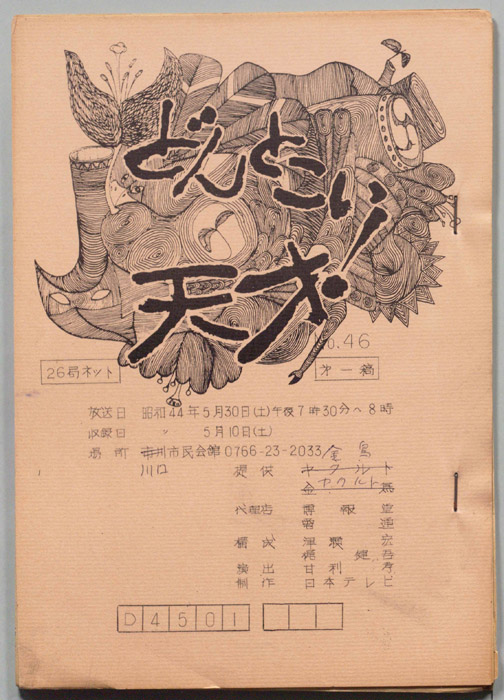 どんとこい!
天才
No.46
26局ネット
第一稿
放送日 昭和44年5月30日(土)午後7時30分〜8時
収録日 〃 5月10日(土)
場所 市川市民会館0766-23-2033
川口
提供 ヤクルト
金鳥
ヤクルト
代理店 博報堂
電通
構成
演出 甘利
制作 日本テレビ
D4501